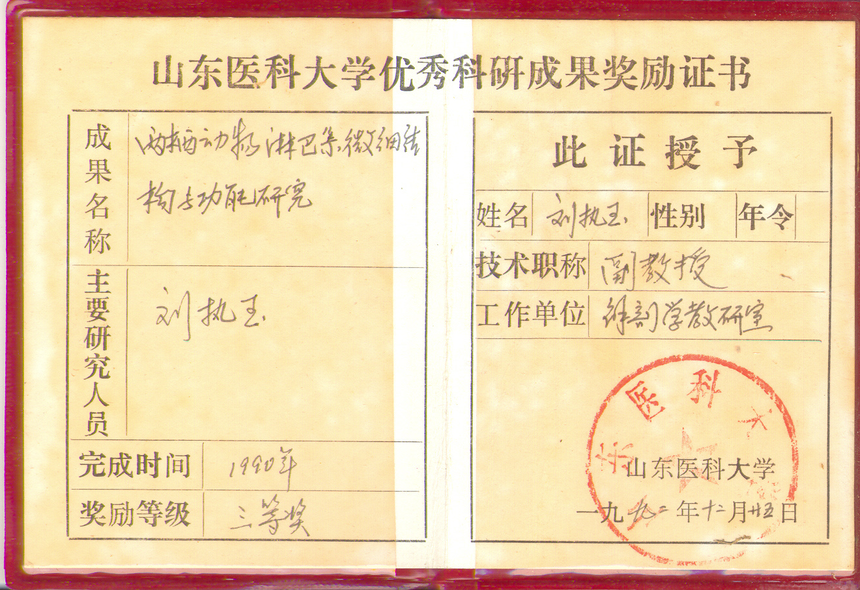 山东医科大学优秀科研成果奖励证书
成果名称
两栖动物淋巴系微细结
构与功能研究
主要研究人员
刘执玉
完成时间 1990年
奖励等级 三等奖
此证授予
姓名 刘执玉 性别 年令
技术职称 副教授
工作单位 解剖学教研室
东医科大
山东医科大学
一九九二年十二月廿五日